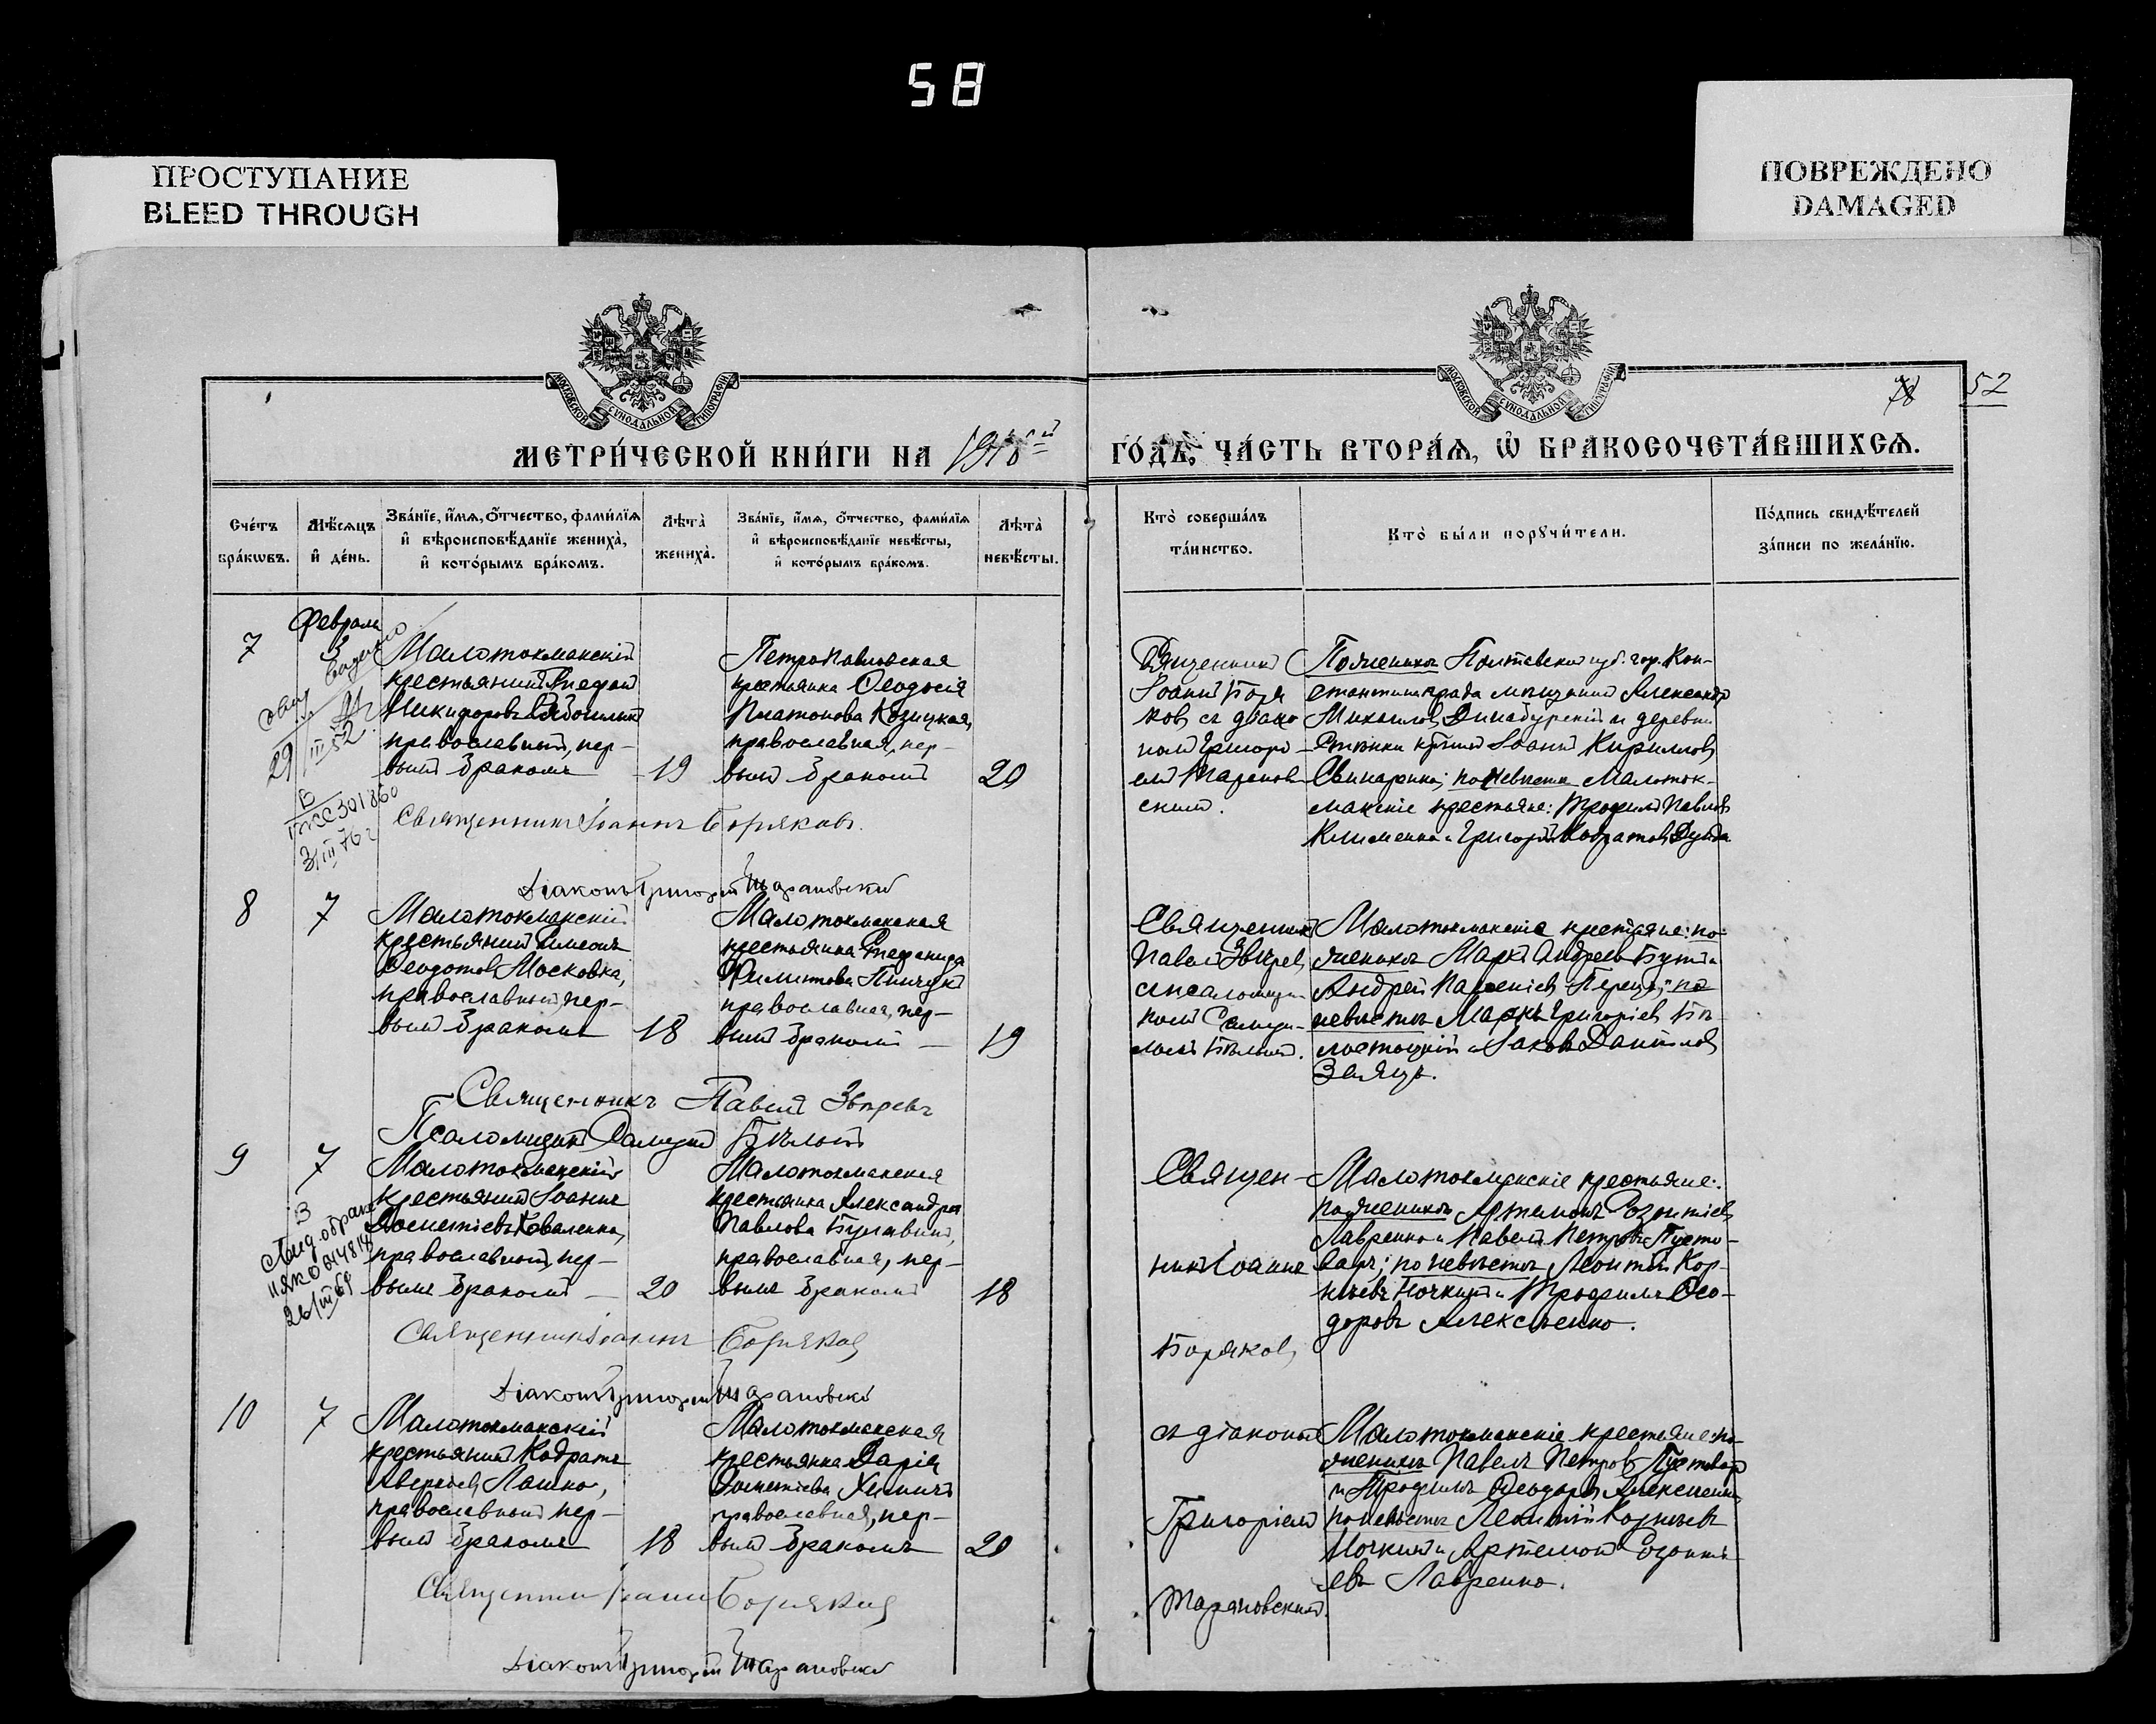 58
ПРОСТУПАНИЕ
BLEED THROUGH
ПОВРЕЖДЕНО
DAMAGED
МОСКОВСКОЙ СѴНОДАЛЬНОЙ ТИПОГРАФІИ
МОСКОВСКОЙ СѴНОДАЛЬНОЙ ТИПОГРАФІИ
52
МЕТРИ́ЧЕСКОЙ КНИ́ГИ НА
ГО́ДЪ, ЧА́СТЬ ВТОРА́Ѧ, Ѡ҆ БРАКОСОЧЕТА́ВШИХСѦ.
Сче́тъ
бра́кѡвъ.
Мѣ́сѧцъ
и҆ де́нь.
Зва́нїе, и҆́мѧ, ѻ҆́тчество, фами́лїѧ
и҆ вѣроисповѣ́данїе жениха̀,
и҆ кото́рымъ бра́комъ.
Лѣта̀
жениха̀.
Зва́нїе, и҆́мѧ, ѻ҆́тчество, фами́лїѧ
и҆ вѣроисповѣ́данїе невѣ́сты,
и҆ кото́рымъ бра́комъ.
Лѣта̀
невѣ́сты.
Кто̀ соверша́лъ
та́инство.
Кто̀ бы́ли порꙋчи́тели.
По́дпись свидѣ́телей
за́писи по жела́нїю.
7
Февраля
3
Малотокмакскій
крестьянинъ
Никифоровъ
православный, пер-
вымъ бракомъ
19
Петропавловская
крестьянка Ѳеодосія
Платонова Козицкая,
православная, пер-
вымъ бракомъ
20
Священникъ
Іоаннъ Боря
ковъ съ діако
номъ Григорі-
емъ Тарановс
скимъ.
По женихѣ Полтавской губ. гор. Кон-
стантинограда мѣщанинъ Александръ
Михайловъ и деревни
Іоаннъ Кирилловъ
Свинаренко; по невѣстѣ Малоток-
макскіе крестьяне: Трофимъ Павловъ
Клименко и Григорій Кодратовъ
29/III 52
3/III 76 г
Священникъ Іоаннъ Боряковъ.
Діаконъ Григорій Тарановскій
8
7
Малотокмакскій
крестьянинъ Симеонъ
Ѳеодотовъ Московка,
православный, пер-
вымъ бракомъ
18
Малотокмакская
крестьянка Стефанида
православная, пер-
вымъ бракомъ
19
Священникъ
Павелъ Звѣревъ
съ псаломщи-
комъ Самуи-
ломъ Бѣлымъ.
Малотокмакскіе крестьяне: по
женихѣ Маркъ Андреевъ и
Андрей по
невѣстѣ Маркъ Григорьевъ Бѣ-
лостоцкій и Іаковъ Даніиловъ
Заяцъ.
Священникъ Павелъ Звѣревъ
Псаломщикъ Самуилъ Бѣлый
9
7
Малотокмакскій
крестьянинъ Іоаннъ
Дометіевъ Коваленко,
православный, пер-
вымъ бракомъ
20
Малотокмакская
крестьянка Александра
Павлова
православная, пер-
вымъ бракомъ
18
Священ-
никъ Іоаннъ
Боряковъ
Малотокмакскіе крестьяне:
по женихѣ Артемонъ Созонтіевъ
Лавренко и Павелъ Петровъ Пусто-
варъ; по невѣстѣ Леонтій Кор-
нѣевъ и Трофимъ Ѳео-
доровъ Алексѣенко.
Священникъ Іоаннъ Боряковъ
Діаконъ Григорій Тарановскій
10
7
Малотокмакскій
крестьянинъ Кодратъ
Аверкіевъ Лашко,
православный, пер-
вымъ бракомъ
18
Малотокмакская
крестьянка Дарія
Дометіева
православная, пер-
вымъ бракомъ
20
съ діакономъ
Григоріемъ
Тарановскимъ.
Малотокмакскіе крестьяне: по
женихѣ Павелъ Петровъ Пустоваръ
и Трофимъ Ѳеодоровъ Алексѣенко,
по невѣстѣ Леонтій Корнѣевъ
и Артемонъ Созонті-
евъ Лавренко.
Священникъ Іоаннъ Боряковъ
Діаконъ Григорій Тарановскій